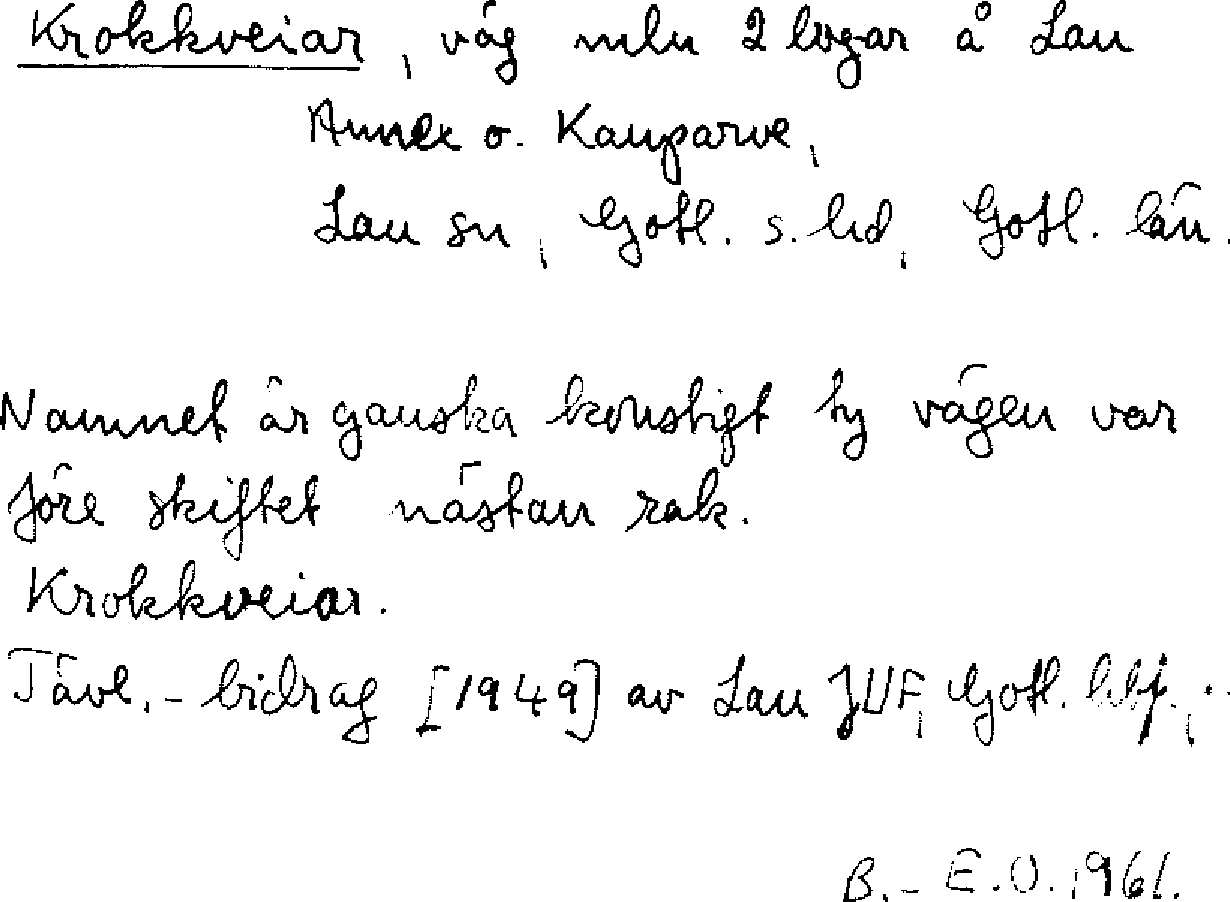 Krokkveiar, väg mln 2 logar å Lau
Annex o. Kauparve,
Lau sn, Gotl. s. hd, Gotl. län.
Namnet är ganska konstigt ty vägen var
före skiftet nästan rak.
Krokkveiar.
Tävl.-bidrag [1949] av Lau JUF, Gotl. hbf.,
B.-E.O. 1961.